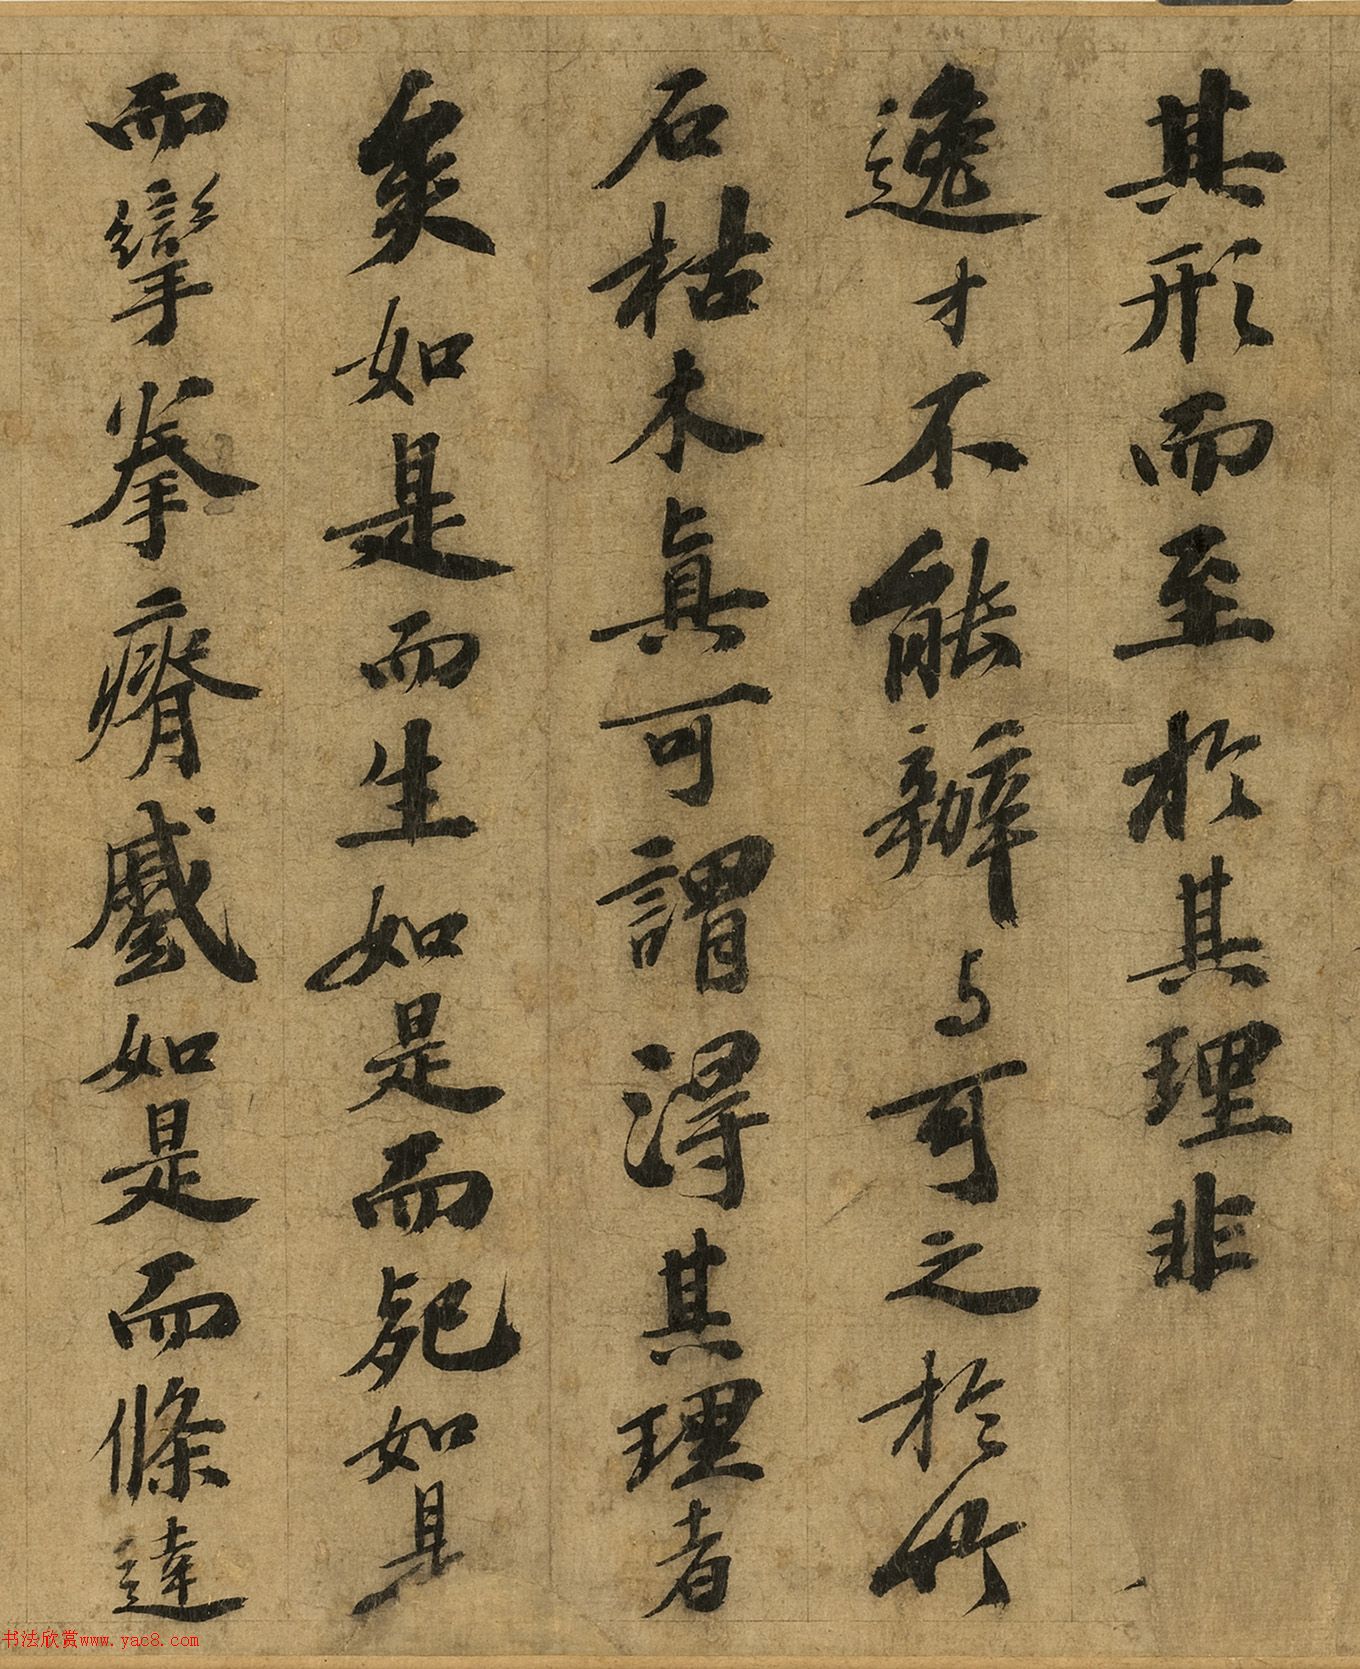 其形而至於其理非
逸才不能辦与可之於竹
石枯木眞可謂得其理者
矣如是而生如是而死如是
而攣拳瘠蹙如是而條達
书法欣赏www.yac8.com